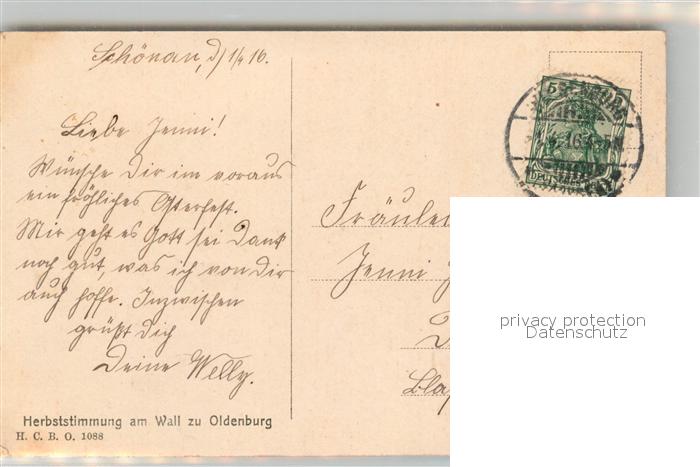 Schönau, d/ 1/4 16.
Liebe Jenni!
Wünsche Dir im voraus
ein fröhliches Osterfest.
Mir geht es Gott sei Dank
noch gut, was ich von Dir
auch hoffe. Inzwischen
grüßt Dich
Deine Welly.
Herbststimmung am Wall zu Oldenburg
H. C. B. O. 1088
Fräulei
Jenni
privacy protection
Datenschutz
5